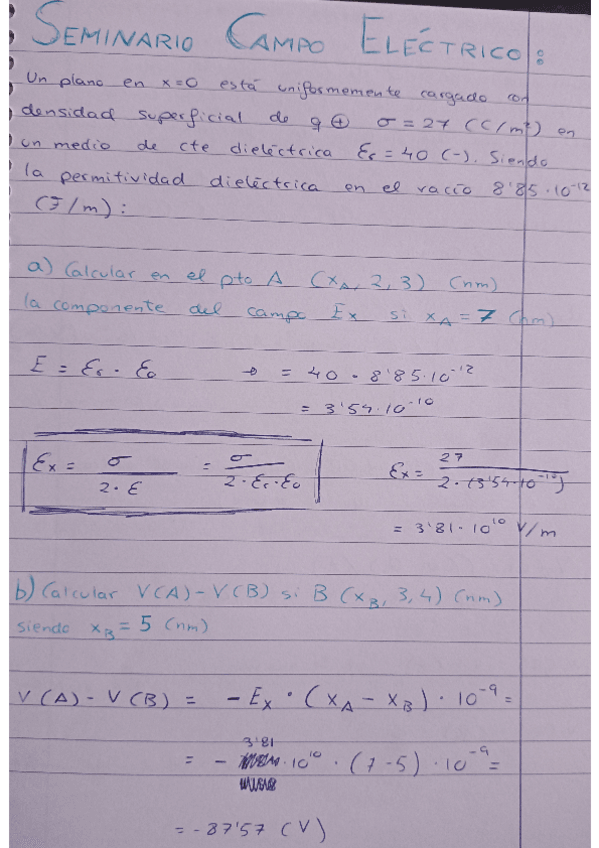 SEMINARIO CAMPO ELÉCTRICO:
Un plano en x=0 está uniformemente cargado con
densidad superficial de q ⊕ σ = 27 (C/m²) en
un medio de cte dieléctrica εr = 40 (-). Siendo
la permitividad dieléctrica en el vacío 8'85·10⁻¹²
(F/m):
a) Calcular en el pto A (xA, 2, 3) (nm)
la componente del campo Ex si xA = 7 (nm)
E = εr · ε0 → = 40 · 8'85·10⁻¹²
= 3'54·10⁻¹⁰
Ex = σ / 2·ε = σ / 2·εr·ε0 Ex = 27 / 2·(3'54·10⁻¹⁰)
= 3'81·10¹⁰ V/m
b) Calcular V(A) - V(B) si B (xB, 3, 4) (nm)
siendo xB = 5 (nm)
V(A) - V(B) = -Ex · (xA - xB) · 10⁻⁹ =
= - 3'81 ·10¹⁰ · (7-5) · 10⁻⁹ =
= -87'57 (V)